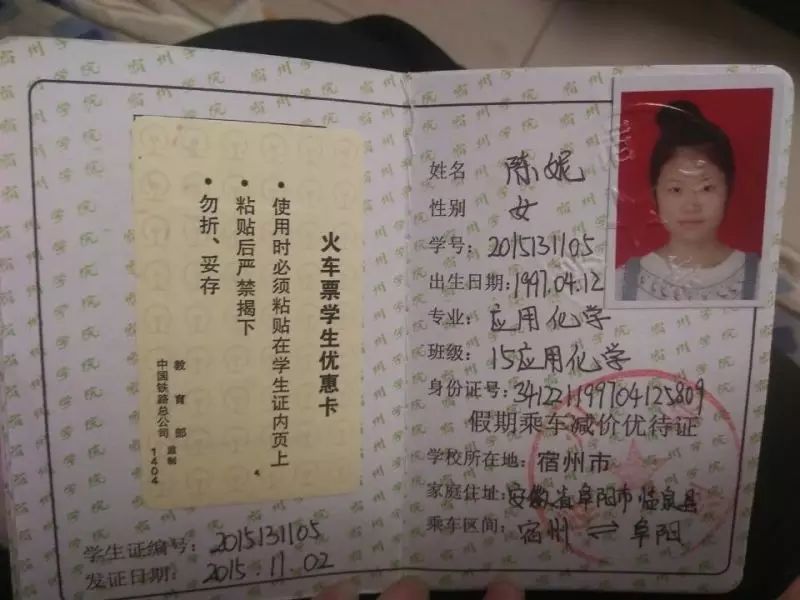 火车票学生优惠卡
• 使用时必须粘贴在学生证内页上
• 粘贴后严禁揭下
• 勿折、妥存
教育部
中国铁路总公司 监制
1404
学生证编号: 2015131105
发证日期: 2015.11.02
姓名 陈妮
性别 女
学号: 2015131105
出生日期: 1997.04.12
专业: 应用化学
班级: 15应用化学
身份证号: 341221199704125809
假期乘车减价优待证
学校所在地: 宿州市
家庭住址: 安徽省阜阳市临泉县
乘车区间: 宿州 ⇌ 阜阳